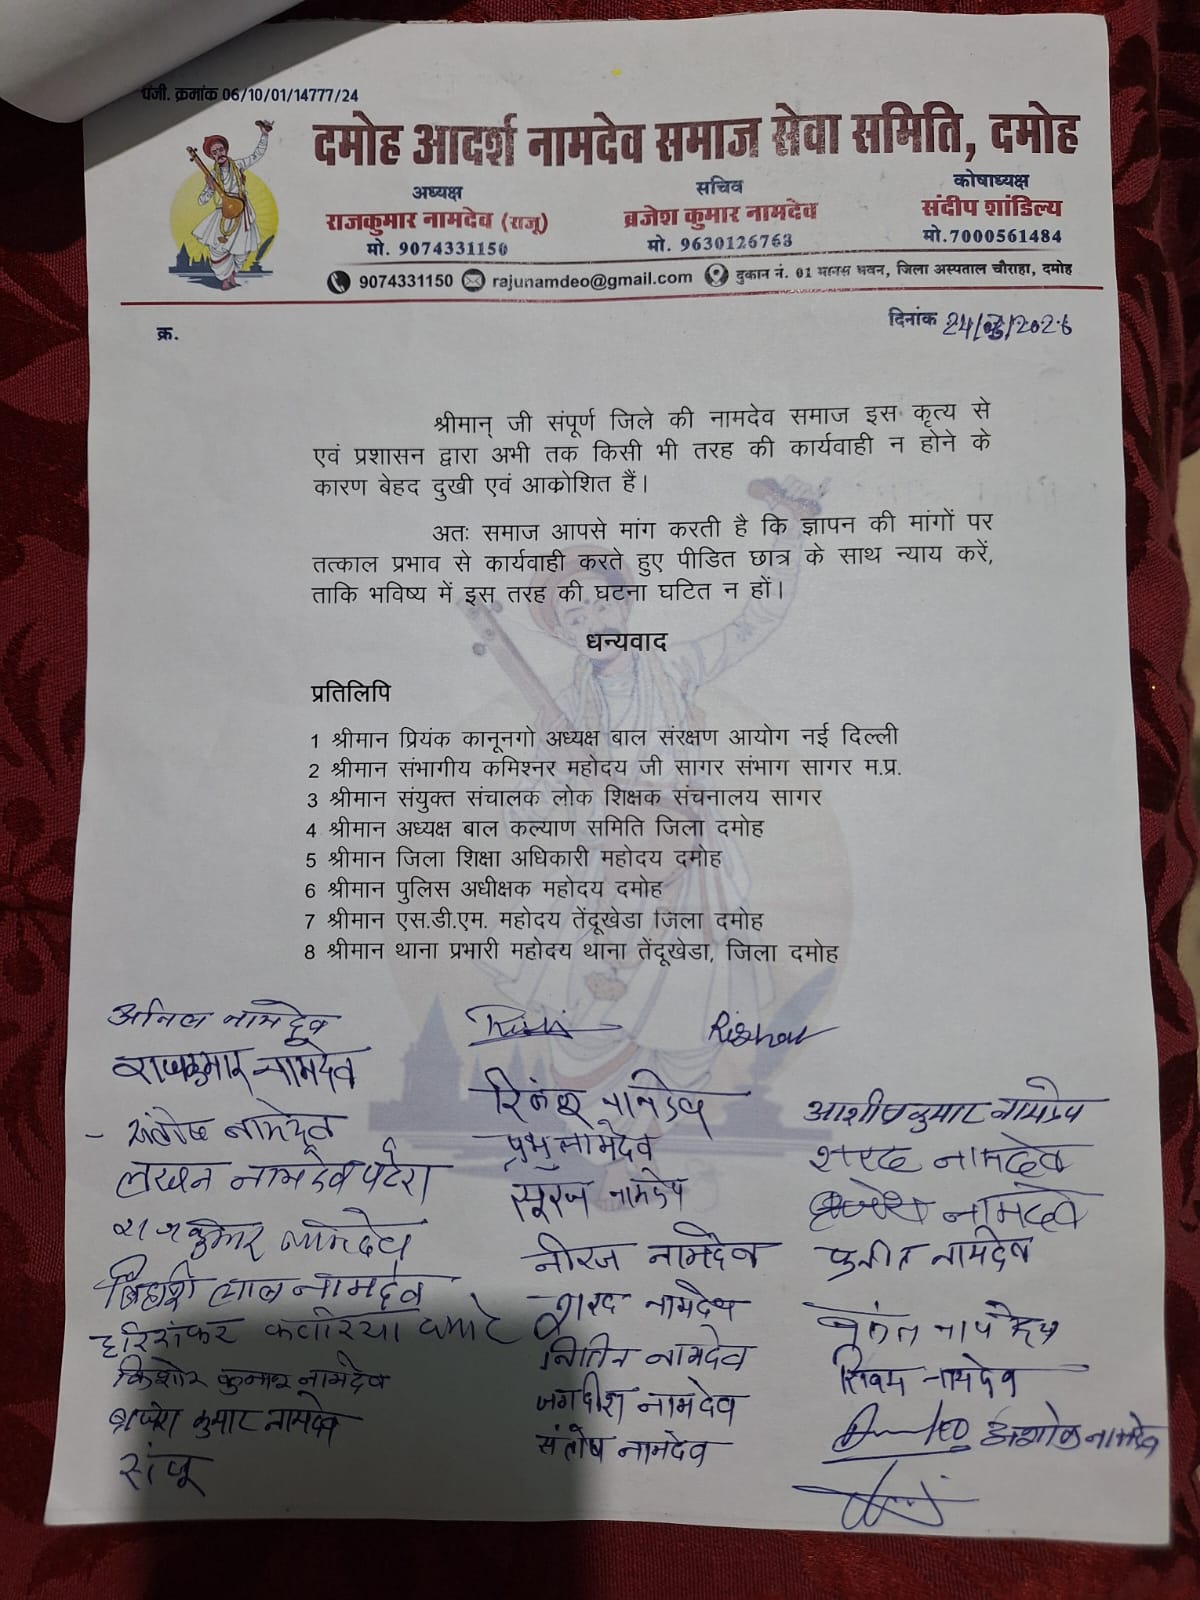 पंजी. क्रमांक 06/10/01/14777/24
दमोह आदर्श नामदेव समाज सेवा समिति, दमोह
अध्यक्ष
राजकुमार नामदेव (राजू)
मो. 9074331150
सचिव
ब्रजेश कुमार नामदेव
मो. 9630126763
कोषाध्यक्ष
संदीप शांडिल्य
मो.7000561484
9074331150 rajunamdeo@gmail.com दुकान नं. 01 मानस भवन, जिला अस्पताल चौराहा, दमोह
क्र.
दिनांक
श्रीमान् जी संपूर्ण जिले की नामदेव समाज इस कृत्य से
एवं प्रशासन द्वारा अभी तक किसी भी तरह की कार्यवाही न होने के
कारण बेहद दुखी एवं आक्रोशित हैं।
अतः समाज आपसे मांग करती है कि ज्ञापन की मांगों पर
तत्काल प्रभाव से कार्यवाही करते हुए पीडित छात्र के साथ न्याय करें,
ताकि भविष्य में इस तरह की घटना घटित न हों।
धन्यवाद
प्रतिलिपि
1 श्रीमान प्रियंक कानूनगो अध्यक्ष बाल संरक्षण आयोग नई दिल्ली
2 श्रीमान संभागीय कमिश्नर महोदय जी सागर संभाग सागर म.प्र.
3 श्रीमान संयुक्त संचालक लोक शिक्षक संचनालय सागर
4 श्रीमान अध्यक्ष बाल कल्याण समिति जिला दमोह
5 श्रीमान जिला शिक्षा अधिकारी महोदय दमोह
6 श्रीमान पुलिस अधीक्षक महोदय दमोह
7 श्रीमान एस.डी.एम. महोदय तेंदूखेडा जिला दमोह
8 श्रीमान थाना प्रभारी महोदय थाना तेंदूखेडा, जिला दमोह
अनिल नामदेव
राजकुमार नामदेव
संतोष नामदेव
लखन नामदेव पटेरा
राजकुमार नामदेव
बिहारी लाल नामदेव
हरिशंकर
किशोर कुमार नामदेव
ब्रजेश कुमार नामदेव
संजू
नामदेव
प्रभु नामदेव
सूरज नामदेव
नीरज नामदेव
शरद नामदेव
नितिन नामदेव
जगदीश नामदेव
संतोष नामदेव
आशीष कुमार नामदेव
शरद नामदेव
बृजेश नामदेव
पुनीत नामदेव
नामदेव
शिवम नामदेव
अशोक नामदेव